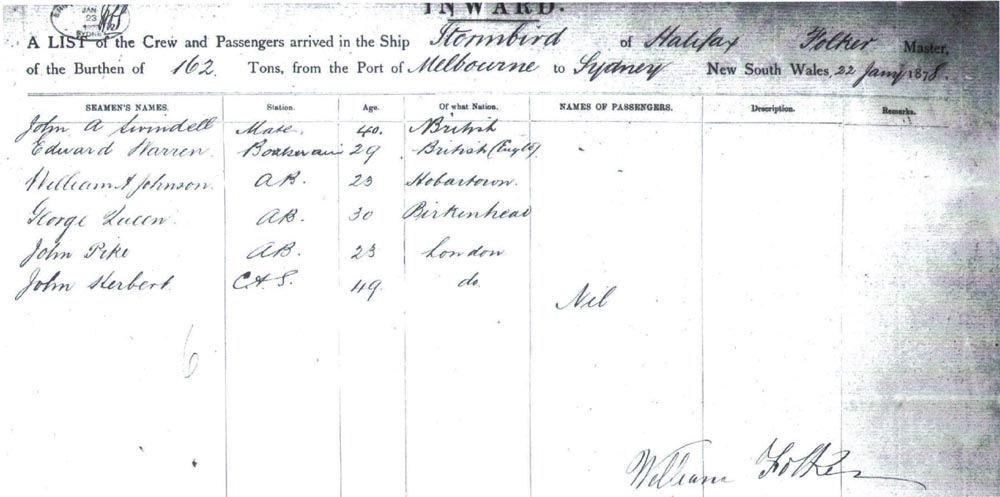 INWARD.
JAN 23
SYDNEY
A LIST of the Crew and Passengers arrived in the Ship Stormbird of Halifax Folker Master,
of the Burthen of 162 Tons, from the Port of Melbourne to Sydney New South Wales, 22 Jany 1878.
SEAMEN'S NAMES. Station. Age. Of what Nation. NAMES OF PASSENGERS. Description. Remarks.
John A Swindell Mate. 40. British
Edward Warren. Boatswain 29 British
William A Johnson. A.B. 23 Hobartown.
George Queen. A.B. 30 Birkenhead
John Pike A.B. 23 London
John Herbert. C & S. 49. do.
Nil
6
William Folker